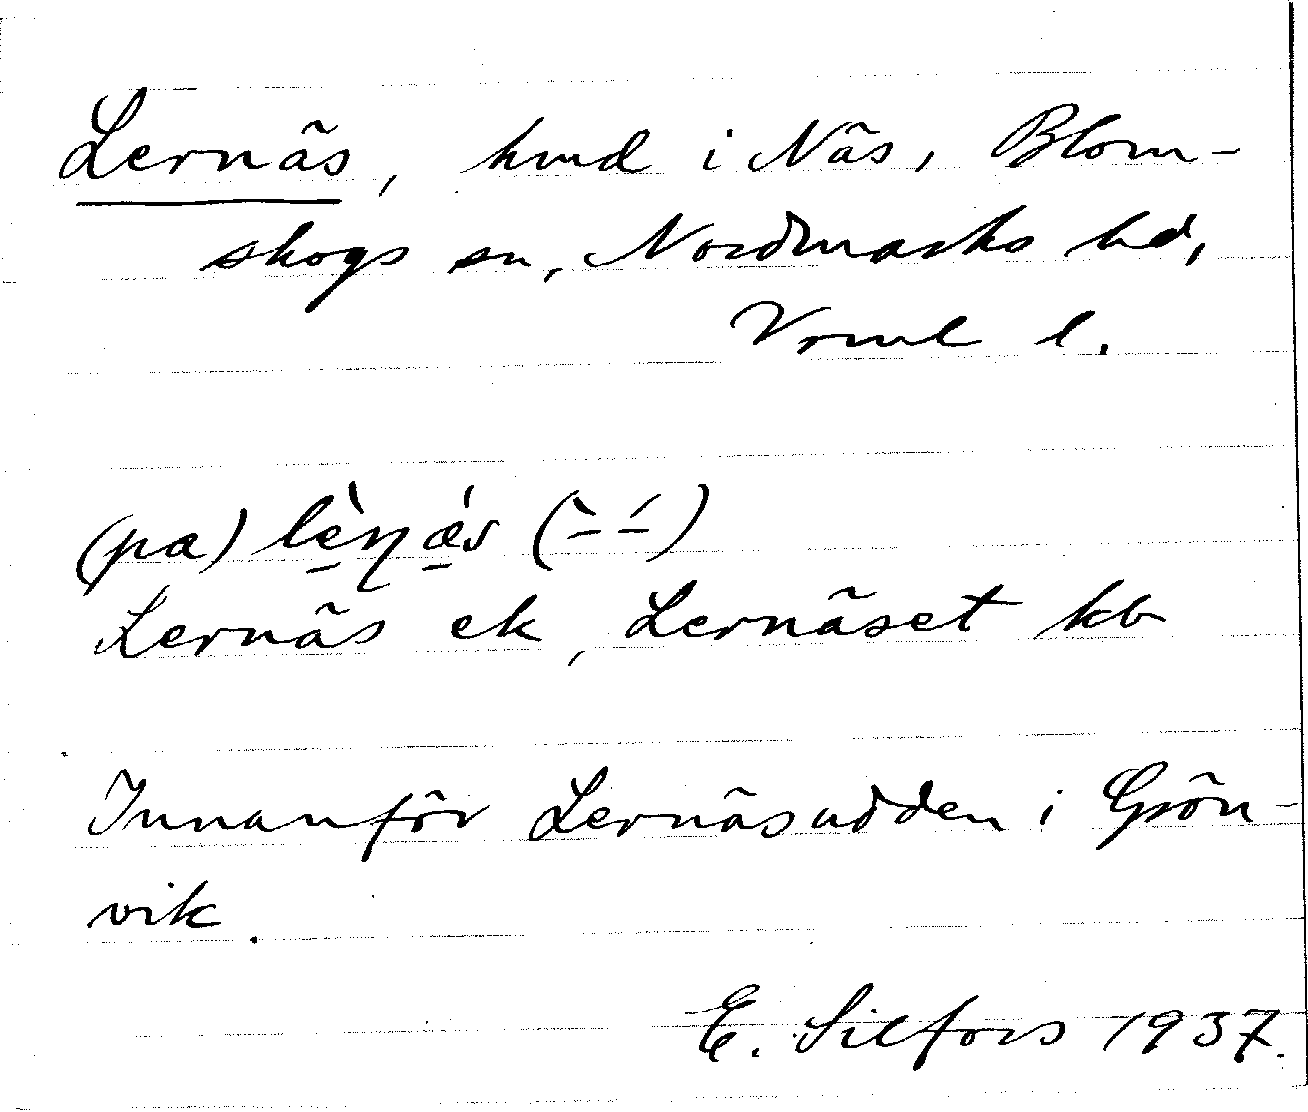 Lernäs, hmd i Näs, Blom-
skogs sn, Nordmarks hd,
Vrml l.
(pa) lèɳæ´s (`– ´–)
Lernäs ek, Lernäset kb
Innanför Lernäsudden i Grön-
vik.
E. Silfors 1937.